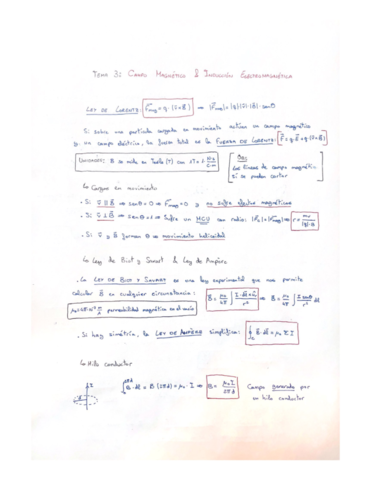 TEMA 3: CAMPO MAGNÉTICO E INDUCCIÓN ELECTROMAGNÉTICA
LEY DE LORENTZ: F⃗mag = q·(v⃗×B⃗) ⟹ |F⃗mag| = |q||v⃗|·|B⃗|·senθ
Si sobre una partícula cargada en movimiento actúan un campo magnético
y un campo eléctrico, la fuerza total es la FUERZA DE LORENTZ: F⃗ = q·E⃗ + q·(v⃗×B⃗)
UNIDADES: B se mide en Tesla (T) con 1T = 1
OBS:
Las líneas de campo magnético
sí se pueden cortar
↳ Cargas en movimiento
· Si v⃗ ∥ B⃗ ⟹ senθ = 0 ⟹ F⃗mag = 0 ⟹ no sufre efectos magnéticos
· Si v⃗ ⊥ B⃗ ⟹ senθ = 1 ⟹ sufre un MCU con radio: ⟹ r = mv/|q|·B
· Si v⃗ y B⃗ forman θ ⟹ movimiento helicoidal
↳ Ley de Biot y Savart & Ley de Ampère
· La LEY DE BIOT Y SAVART es una ley experimental que nos permite
calcular B⃗ en cualquier circunstancia:
permeabilidad magnética en el vacío
· Si hay simetría, la LEY DE AMPÈRE simplifica: ∮ B⃗·dl⃗ = μ₀ Σ I
↳ Hilo conductor
I
B⃗·dl⃗ = B(2πd) = μ₀·I ⟹ B = μ₀I/2πd Campo generado por
un hilo conductor